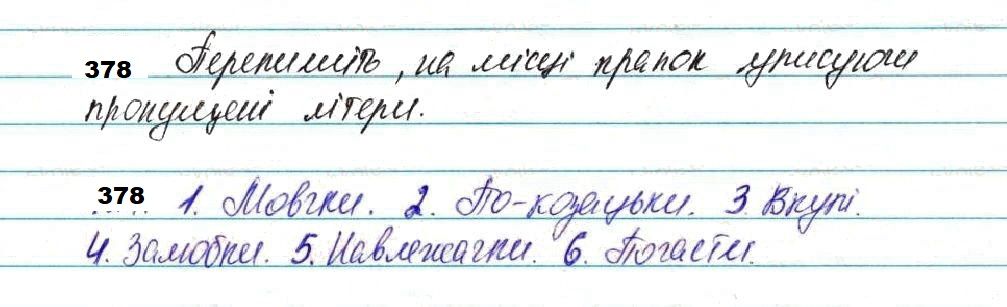 378 Перепишіть, на місці крапок уписуючи
пропущені літери.
378 1. Мовчки. 2. По-козацьки. 3. Вкупі.
4. Залюбки. 5. Навлежачки. 6. Почасти.